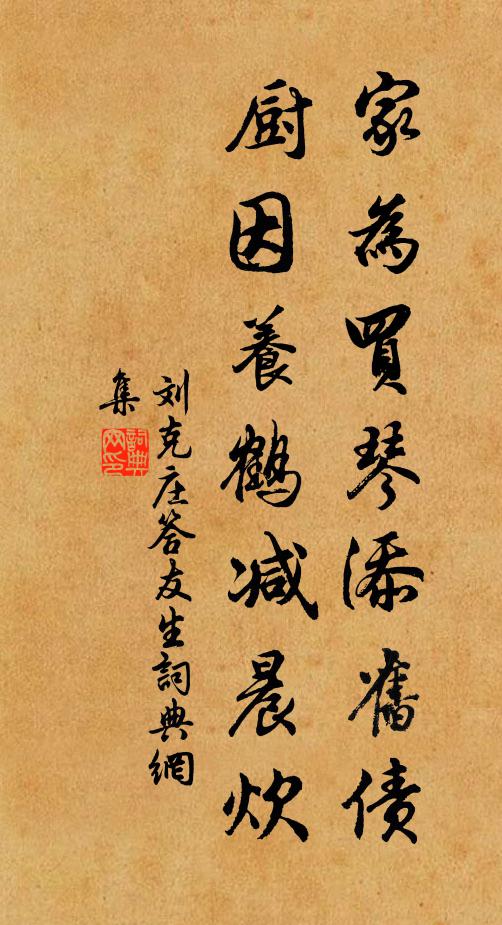 家為買琴添舊债
厨因養鶴减晨炊
刘克庄答友生詞典網
集
詞典網印